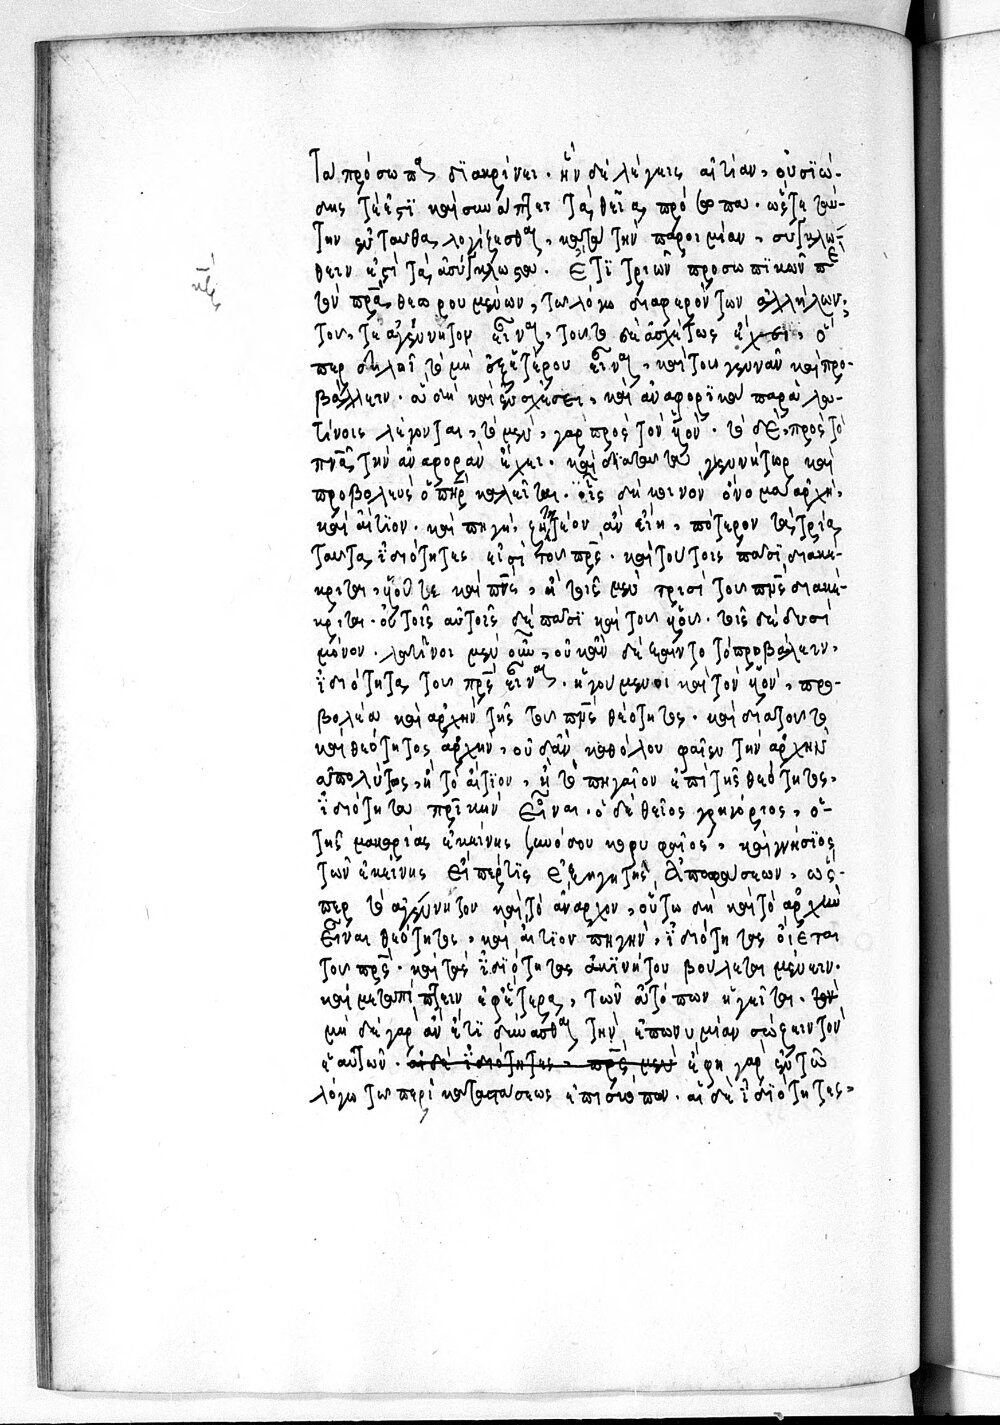 Τὰ πρόσωπα διακρίνει. ἣν δὲ λέγεις αἰτίαν, οὐσιώ-
δης τέ ἐστι καὶ συνάπτει τὰ θεῖα πρόσωπα. ὥστε
τὴν ἐνταῦθα λογίζεσθαι, κατὰ τὴν παροιμίαν, συγκλώ-
θειν ἐστὶ τὰ ἀσύγκλωστα. Ἔτι τριῶν προσωπικῶν
τὸν πρα θεωρουμένων, τῷ λόγῳ διαφερόντων ἀλλήλων,
τοῦ, τε ἀγέννητον εἶναι, τοῦτο δὲ ἀσχέτως ἔχει, ὅ
περ δηλοῖ τὸ μὴ ἐξ ἑτέρου εἶναι, καὶ τοῦ γεννᾶν καὶ προ-
βάλλειν. ἃ δὴ καὶ ἐν σχέσει, καὶ ἀναφορικὰ παρὰ λα-
τίνοις λέγονται, τὸ μὲν, γὰρ πρὸς τὸν υἱόν. τὸ δὲ, πρὸς τὸ
πνα τὴν ἀναφορὰν ἔχει. καὶ διὰ ταῦτα γεννήτωρ καὶ
προβολεὺς ὁ πηρ καλεῖται. οἷς δὴ κοινὸν ὄνομα ἀρχὴ,
καὶ αἴτιον. καὶ πηγὴ, ζητητέον ἂν εἴη, πότερον τὰ τρία
ταῦτα ἰδιότητες εἰσὶ τοῦ πρς. καὶ τούτοις πᾶσι διακέ-
κριται, υἱοῦ τε καὶ πνς, ἢ τοῖς μὲν τρισὶ τοῦ πνς διακέ-
κριται. τοῖς αὐτοῖς δὲ πᾶσι καὶ τοῦ υἱοῦ. τοῖς δὲ δυσὶ
μόνον. λατῖνοι μὲν οὖν, οὐκ ἂν δέξαιντο τὸ προβάλλειν,
ἰδιότητα τοῦ πρς εἶναι. ἡγούμενοι καὶ τὸν υἱὸν, προ-
βολέα καὶ ἀρχὴν τῆς τοῦ πνς θεότητος. καὶ διὰ τοῦτο
καὶ θεότητος ἀρχὴν, οὐδ' ἂν καθόλου φαῖεν τὴν ἀρχὴν
ἀπολύτως, ἢ τὸ αἴτιον, ἢ τὸ πηγαῖον ἐπὶ τῆς θεότητος,
ἰδιότητα πρικὴν εἶναι. ὁ δὲ θεῖος γρηγόριος, ὁ
τῆς μακαρίας ἐκείνης ξυνόδου κορυφαῖος, καὶ γνήσιος
τῶν ἐκείνης εἴπερ τις ἐξηγητὴς ἀποφάσεων, ὥσ-
περ τὸ ἀγέννητον καὶ τὸ ἄναρχον, οὕτω δὴ καὶ τὸ ἀρχὴν
εἶναι θεότητος, καὶ αἴτιον πηγὴν, ἰδιότητας οἴεται
τοῦ πρς. καὶ τὰς ἰδιότητας ἀκινήτους βούλεται μένειν.
καὶ μεταπίπτειν ἐφ' ἕτερα, τῶν ἀτόπων ἡγεῖται.
μὴ δὲ γὰρ ἂν ἔτι δύνασθαι τὴν ἐπωνυμίαν σώζειν τὸν
ἑαυτῶν. αἱ δὲ ἰδιότητες, πρς μὲν ἔφη γὰρ ἐν τῷ
λόγῳ τῷ περὶ καταστάσεως ἐπισκόπων. αἱ δὲ ἰδιότητες,